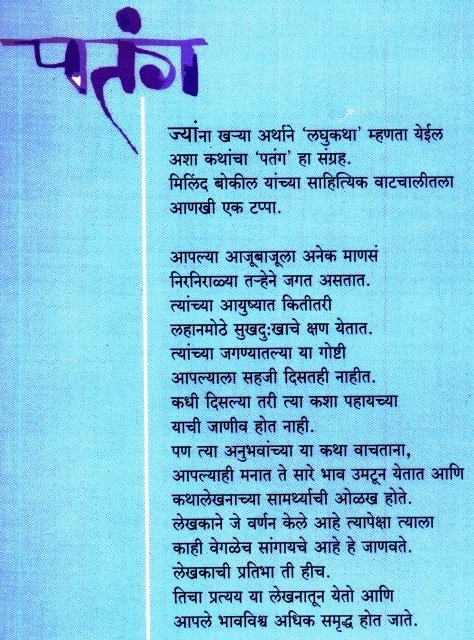 पतंग
ज्यांना खऱ्या अर्थाने ‘लघुकथा’ म्हणता येईल
अशा कथांचा ‘पतंग’ हा संग्रह.
मिलिंद बोकील यांच्या साहित्यिक वाटचालीतला
आणखी एक टप्पा.
आपल्या आजूबाजूला अनेक माणसं
निरनिराळ्या तऱ्हेने जगत असतात.
त्यांच्या आयुष्यात कितीतरी
लहानमोठे सुखदु:खाचे क्षण येतात.
त्यांच्या जगण्यातल्या या गोष्टी
आपल्याला सहजी दिसतही नाहीत.
कधी दिसल्या तरी त्या कशा पहायच्या
याची जाणीव होत नाही.
पण त्या अनुभवांच्या या कथा वाचताना,
आपल्याही मनात ते सारे भाव उमटून येतात आणि
कथालेखनाच्या सामर्थ्याची ओळख होते.
लेखकाने जे वर्णन केले आहे त्यापेक्षा त्याला
काही वेगळेच सांगायचे आहे हे जाणवते.
लेखकाची प्रतिभा ती हीच.
तिचा प्रत्यय या लेखनातून येतो आणि
आपले भावविश्व अधिक समृद्ध होत जाते.